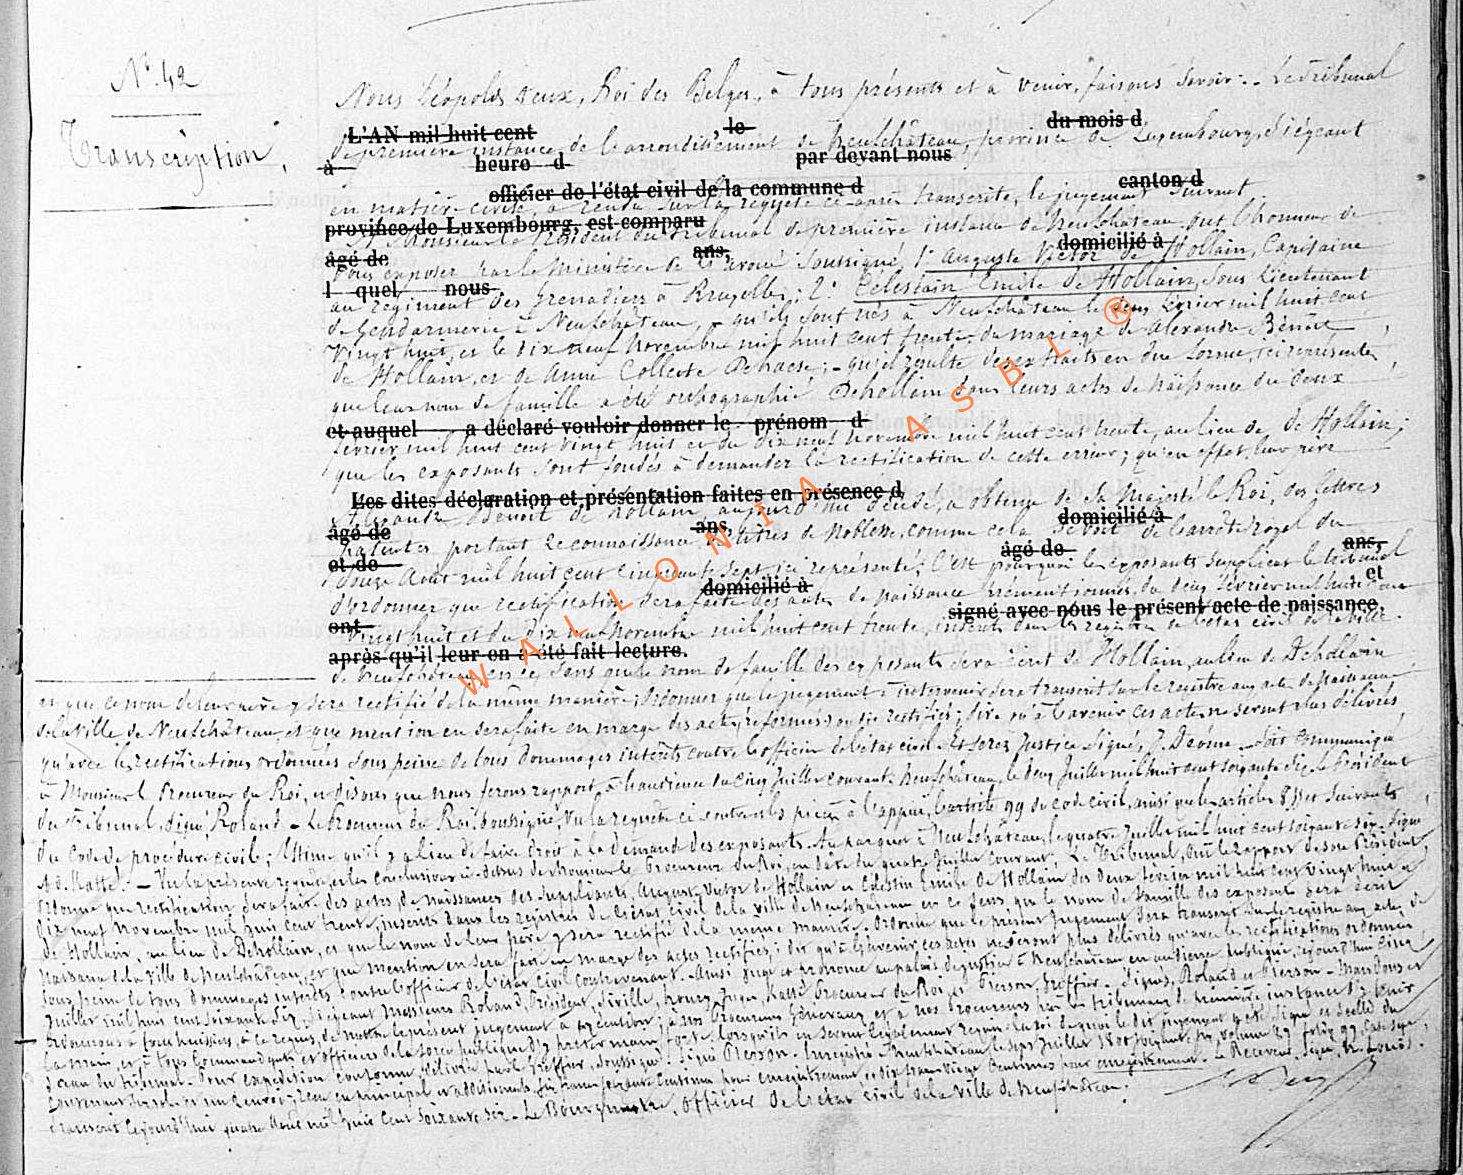 N° 42
Transcription.
Nous Léopold deux, Roi des Belges, à tous présents et à venir, faisons savoir :- Le Tribunal
L'AN mil huit cent le du mois d
de première instance de l'arrondissement de Neufchâteau, province de Luxembourg, siégeant
à heure d par devant nous
officier de l'état civil de la commune d canton d
en matière civile, a rendu sur la requête ci-après transcrite, le jugement suivant
province de Luxembourg, est comparu
A Monsieur le Président du Tribunal de première instance de Neufchâteau ont l'honneur de
âgé de ans, domicilié à
Vous exposer par le Ministère de l'avoué soussigné, 1° Auguste Victor de Hollain, Capitaine
l quel nous
au régiment des Grenadiers à Bruxelles; 2° Célestin Emile de Hollain, Sous Lieutenant
de Gendarmerie à Neufchâteau, - qu'ils sont nés à Neufchâteau le deux février mil huit cent
vingt huit, et le dix neuf novembre mil huit cent trente, du mariage de Alexandre Benoit
de Hollain, et de Anne Collecte Dehaese; - qu'il résulte des extraits en due forme, ici représentés
que leur nom de famille a été orthographié Dehollain dans leurs actes de naissance du deux
et auquel a déclaré vouloir donner le prénom d
février mil huit cent vingt huit et du dix neuf novembre mil huit cent trente, au lieu de de Hollain;
que les exposants sont fondés à demander la rectification de cette erreur; qu'en effet, leur père
Les dites déclaration et présentation faites en présence d
Alexandre Benoit de Hollain, aujourd'hui décédé, a obtenu de Sa Majesté le Roi, des lettres
âgé de ans, domicilié à
patentes portant reconnaissance de titres de Noblesse, comme cela se voit de l'arrêté royal du
et de âgé de ans,
douze Août mil huit cent cinquante sept ici représenté; C'est pourquoi les exposants supplient le tribunal
domicilié à et
d'ordonner que rectification sera faite des actes de naissance prémentionnés, du deux février mil huit cent
ont signé avec nous le présent acte de naissance,
vingt huit et du dix neuf Novembre mil huit cent trente, inscrits dans les registres de l'état civil de la ville
après qu'il leur en a été fait lecture.
de Neufchâteau, en ce sens que le nom de famille des exposants sera écrit de Hollain, au lieu de Dehollain
et que ce nom de leur père y sera rectifié de la même manière; Ordonner que le jugement à intervenir sera transcrit sur le registre aux actes de Naissance
de la ville de Neufchâteau, et que mention en sera faite en marge des actes réformés ou dits rectifiés; dire qu'à l'avenir ces actes ne seront plus délivrés
qu'avec les rectifications ordonnées sous peine de tous dommages intérêts contre l'officier de l'état civil. Et serez Justice Signé, J. - Soit communiqué
à Monsieur le Procureur du Roi, et disons que nous ferons rapport, à l'audience du cinq Juillet courant. Neufchâteau, le deux Juillet mil huit cent soixante dix. Le Président
du Tribunal, signé, Roland - Le Procureur du Roi, soussigné, Vu la requête ci contre et les pièces à l'appui, l'article 99 du code civil, ainsi que les articles 855 et suivants
du Code de procédure civile; Estime qu'il y a lieu de faire droit à la demande des exposants. Au parquet à Neufchâteau, le quatre Juillet mil huit cent soixante dix. Signé
- Vu la présente requête, et les Conclusions ci-dessus de Monsieur le Procureur du Roi, en date du quatre Juillet courant; Le Tribunal, Ouï le rapport de son Président,
Ordonne que rectification sera faite des actes de naissances des suppliants, Auguste Victor de Hollain et Célestin Emile de Hollain des deux février mil huit cent vingt huit et
dix neuf novembre mil huit cent trente, inscrits dans les registres de l'état civil de la ville de Neufchâteau en ce sens, que le nom de famille des exposants sera écrit
de Hollain, au lieu de Dehollain, et que le nom de leur père y sera rectifié de la même manière. Ordonne que le présent jugement sera transcrit sur le registre aux actes de
Naissance de la ville de Neufchâteau, et que mention en sera faite en marge des actes rectifiés; dit qu'à l'avenir ces actes ne seront plus délivrés qu'avec les rectifications ordonnées
sous peine de tous dommages intérêts contre l'officier de l'état civil contrevenant. Ainsi jugé et prononcé au palais de justice à Neufchâteau en audience publique, ce jourd'hui cinq
Juillet mil huit cent soixante dix, siégeant Messieurs Roland, Président, Procureur du Roi et Pierson, Greffier. - Signés, Roland et Pierson - Mandons et
ordonnons à tous huissiers, à ce requis, de mettre le présent jugement à exécution; à nos Procureurs Généraux et à nos Procureurs près les tribunaux de première instance d'y tenir
la main, et à tous Commandants et officiers de la force publique d'y prêter main forte, lorsqu'ils en seront légalement requis. En foi de quoi le dit jugement a été signé et scellé du
sceau du tribunal. - Pour expédition conforme, délivrée par le Greffier, soussigné. Signé Pierson. - Enregistré à Neufchâteau le sept Juillet 1800 soixante dix, volume 27 folio 97 case
pour enregistrement. - Le Receveur, signé,
Transcrit ce jourd'hui quatre Août mil huit cent soixante dix. - Le Bourgmestre, Officier de l'état civil de la ville de Neufchâteau.
WALLONIA ASBL ®